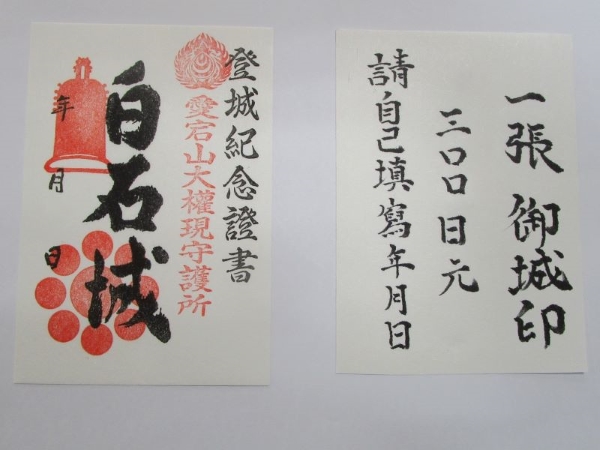 登城紀念證書
愛宕山大權現守護所
白石城
年月日
一張 御城印
三〇〇日元
請自己填寫年月日